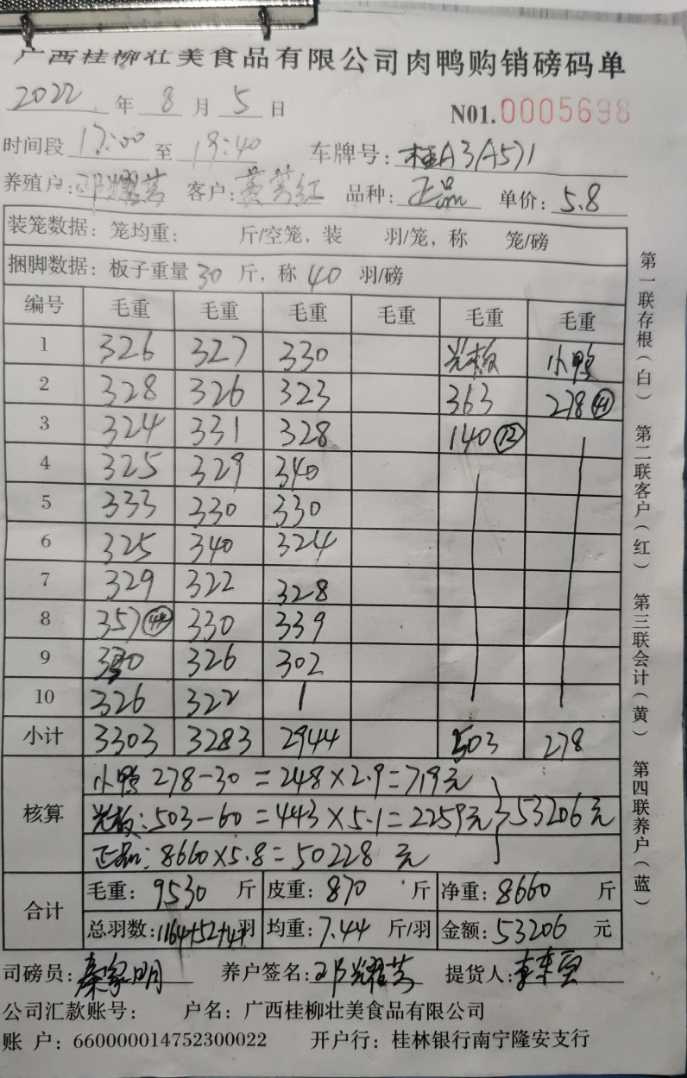 广西桂柳壮美食品有限公司肉鸭购销磅码单
2022 年 8 月 5 日 N01.0005698
时间段 17:00 至 19:40 车牌号: 桂A3A571
养殖户: 邓耀芳 客户: 黄芳红 品种: 正品 单价: 5.8
装笼数据: 笼均重: 斤/空笼, 装 羽/笼, 称 笼/磅
捆脚数据: 板子重量 30 斤, 称 40 羽/磅
编号 毛重 毛重 毛重 毛重 毛重 毛重
1 326 327 330 光板 小鸭
2 328 326 323 363 278 44
3 324 331 328 140 12
4 325 329 340
5 333 330 330
6 325 340 324
7 329 322 328
8 357 44 330 339
9 330 326 302
10 326 322
小计 3303 3283 2944 503 278
核算
小鸭 278-30=248×2.9=719元
光板:503-60=443×5.1=2259元 53206元
正品:8660×5.8=50228 元
合计
毛重: 9530 斤 皮重: 870 斤 净重: 8660 斤
总羽数: 1164+52+44羽 均重: 7.44 斤/羽 金额: 53206 元
司磅员: 秦家明 养户签名: 邓耀芳 提货人:
公司汇款账号: 户名: 广西桂柳壮美食品有限公司
账 户: 660000014752300022 开户行: 桂林银行南宁隆安支行
第一联存根(白) 第二联客户(红) 第三联会计(黄) 第四联养户(蓝)